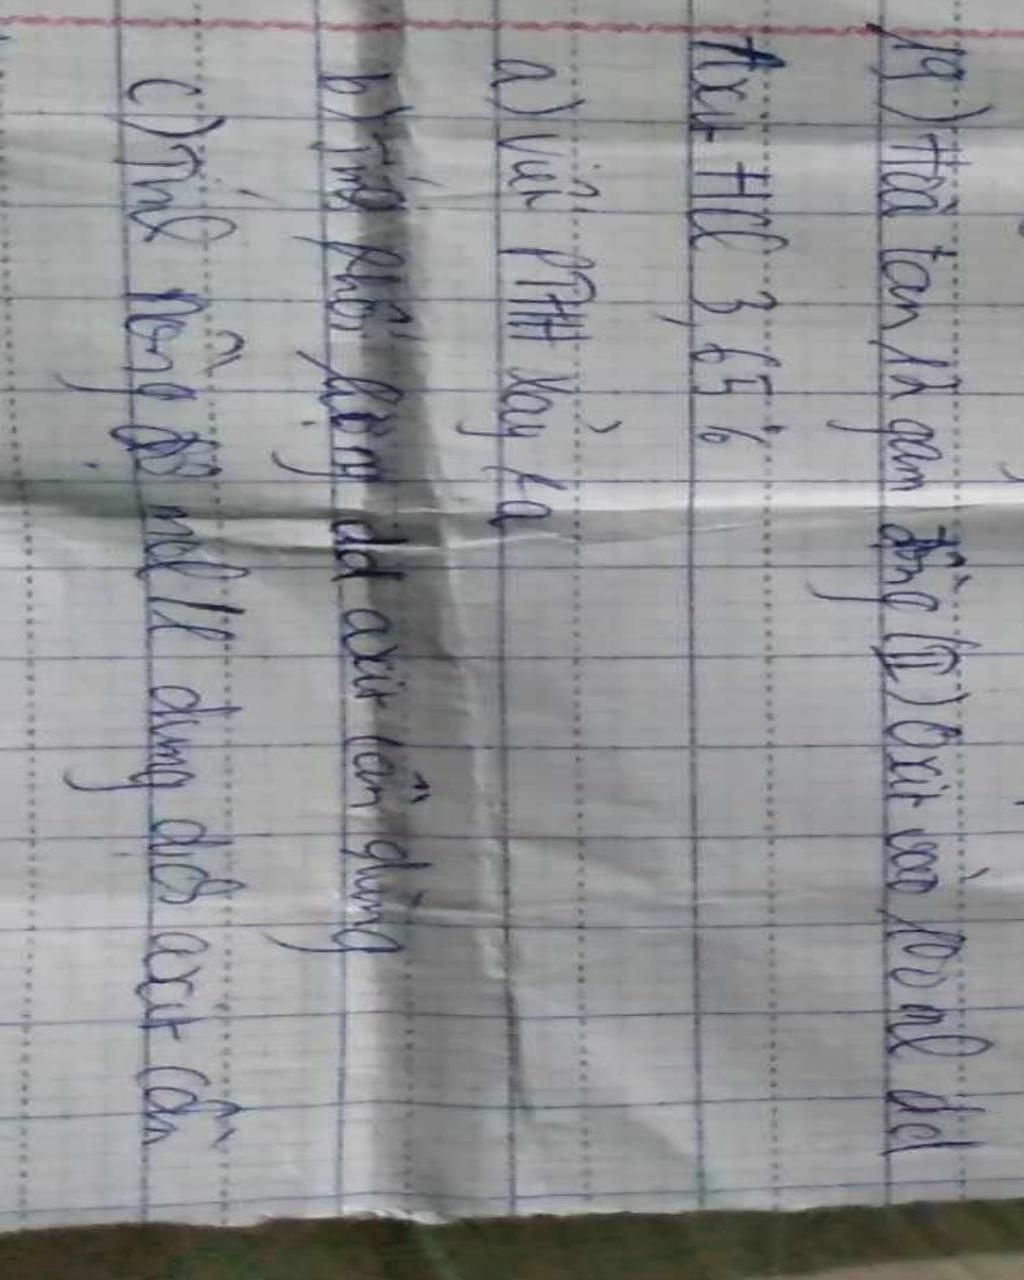 19) Hoà tan 12 gam đồng (II) Oxit vào 100 ml dd
Axit HCl 3,65%
a) Viết PTHH xảy ra
b) Tính khối lượng dd axit cần dùng
c) Tính nồng độ mol/l dung dịch axit cần